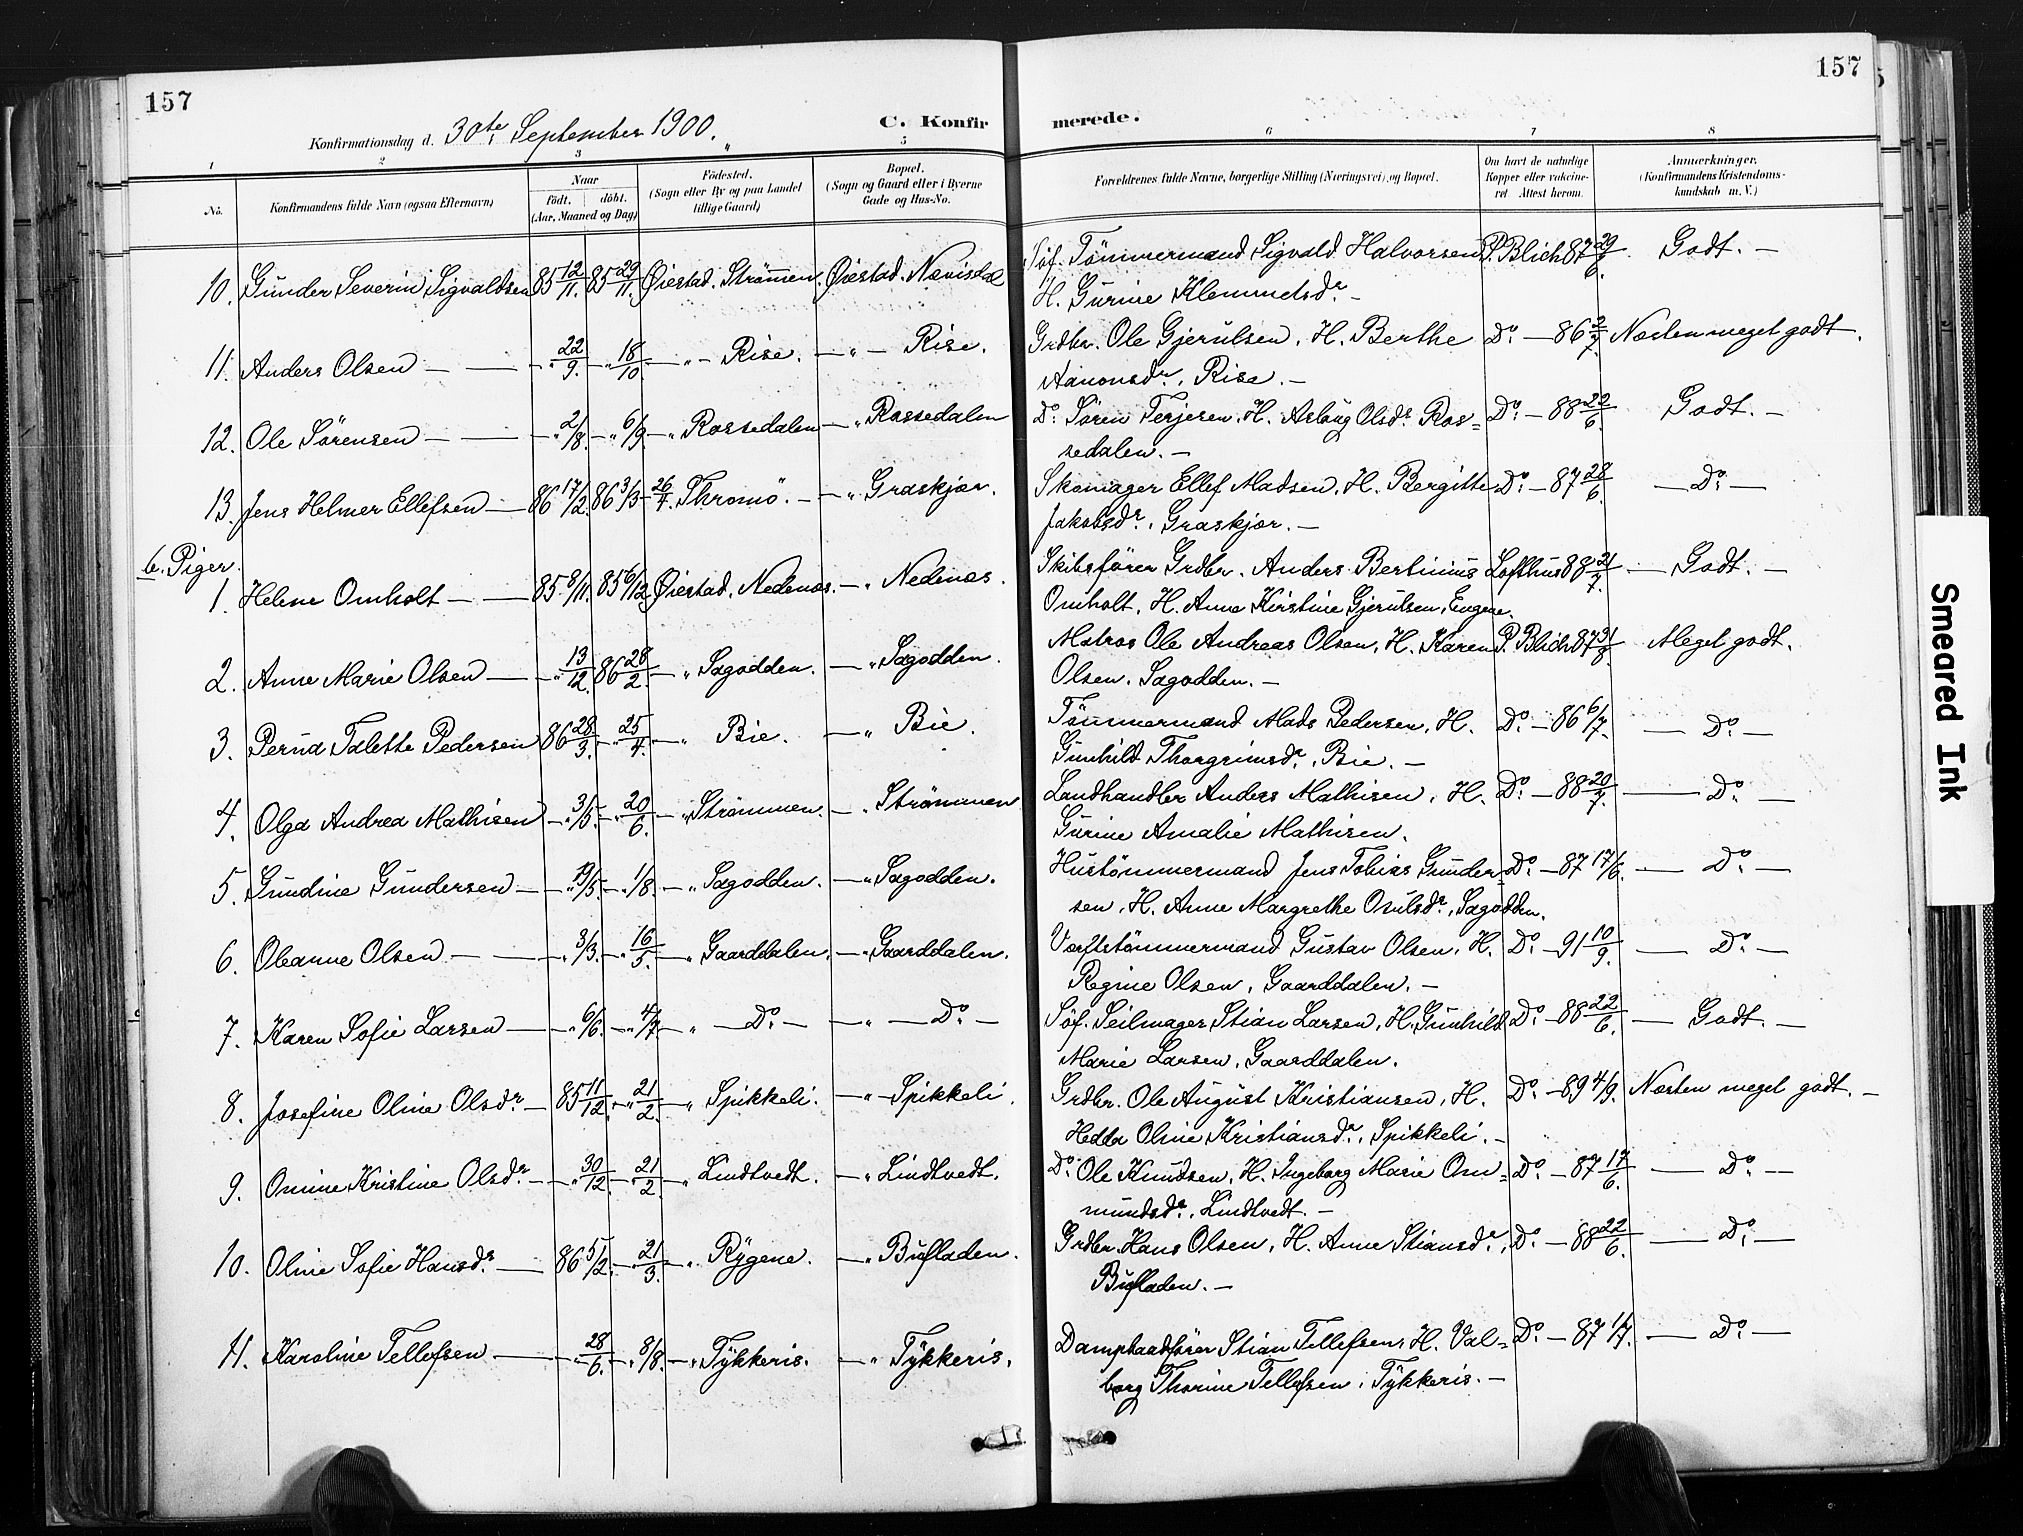 157
157
Konfirmationsdag d. 30te September 1900.
C. Konfirmerede.
1 2 3 5 6 7 8
No.
Konfirmandens fulde Navn (ogsaa Efternavn)
Naar
født. døbt.
(Aar, Maaned og Dag)
Fødested.
(Sogn eller By og paa Landet
tillige Gaard)
Bopæl.
(Sogn og Gaard eller i Byerne
Gade og Hus-No.
Forældrenes fulde Navne, borgerlige Stilling (Næringsvei), og Bopæl.
Om havt de naturlige
Kopper eller vakcine-
ret Attest herom.
Anmærkninger.
(Konfirmandens Kristendoms-
kundskab m. V.)
10. Gunder Severin Sigvaldsen 85 12/11. 85 29/11. Øiestad. Strømmen. Øiestad. Nævisdal Søf. Tømmermand Sigvald Halvorsen P. Blich 87 29/6. Godt. —
H. Gurine Klemmetsdr. —
11. Anders Olsen — — „ 22/9. — „ 18/10 — „ — Rise. — „ — Rise. Grdbr. Ole Gjerulsen, H. Berthe Do — 86 2/7. Næsten meget godt.
Aanonsdr., Rise. —
12. Ole Sørensen — — „ 2/8. — „ 6/9 — „ Rossedalen — „ Rossedalen Do. Søren Terjesen, H. Aslaug Olsdr. Ros= Do. — 88 22/6. Godt. —
sedalen. —
13. Jens Helmer Ellefsen — 86 17/2. 86 3/3 26/4. Thromö. — — „ Graskjær. Skomager Ellef Madsen, H. Bergitte Do. — 87 28/6. — Do. —
Jakobsdr., Graskjær. —
b. Piger.
1. Helene Omholt — — 85 8/11. 85 6/12 Øiestad. Nedenæs. — „ Nedenæs. Skibsfører Grdbr. Anders Bertinius Lofthus 88 21/7. — Godt. —
Omholt, H. Anne Kirstine Gjerulsen, Engene.
2. Anne Marie Olsen — — „ 13/12. 86 28/2. — „ Sagodden. — „ Sagodden. Matros Ole Andreas Olsen, H. Karen P. Blich 87 31/8. Meget godt.
Olsen, Sagodden. —
3. Perna Talette Pedersen 86 28/3. — „ 25/4. — „ Bie. — „ Bie. Tømmermand Mads Pedersen, H. Do — 86 6/7. — Do. —
Gunhild Thorgrimsdr., Bie. —
4. Olga Andrea Mathisen — „ 3/5 — „ 20/6. — „ Strømmen. — „ Strømmen Landhandler Anders Mathisen, H. Do. — 88 20/7. — Do. —
Gurine Amalie Mathisen.
5. Gundine Gundersen — — „ 19/5 — „ 1/8. — „ Sagodden. — „ Sagodden. Hustømmermand Jens Tobias Gunder= Do. — 87 17/6. — Do. —
sen, H. Anne Margrethe Osulsdr., Sagodden.
6. Obanne Olsen — — „ 3/3. — „ 16/5. — „ Gaarddalen. — „ Gaarddalen. Værftstømmermand Gustav Olsen, H. Do. — 91 10/9. — Do. —
Regine Olsen, Gaarddalen. —
7. Karen Sofie Larsen — — „ 6/6. — „ 4/7. — „ — Do. — — „ — Do. — Søf. Seilmager Stian Larsen, H. Gunhild Do. — 88 22/6. — Godt. —
Marie Larsen, Gaarddalen.
8. Josefine Oline Olsdr. — 85 11/12. — „ 21/2. — „ Spikkeli. — „ Spikkeli. Grdbr. Ole August Kristiansen, H. Do. — 89 4/9. Næsten meget godt. —
Hedda Oline Kristiansdr., Spikkeli. —
9. Omine Kristine Olsdr. — — „ 30/12. — „ 21/2. — „ Lindtvedt. — „ Lindtvedt. Do. Ole Knudsen, H. Ingeborg Marie Om= Do. — 87 17/6. — Do. —
mundsdr., Lindtvedt. —
10. Oline Sofie Hansdr. — 86 5/2. — „ 21/3. — „ Rygene. — „ Bufladen. Grdbr. Hans Olsen, H. Anne Stiansdr., Do. — 88 22/6. — Do. —
Bufladen. —
11. Karoline Tellefsen — — „ 28/6. — „ 8/8. — „ Tykkeris. — „ Tykkeris. Dampbaadfører Stian Tellefsen, H. Val= Do. — 87 1/7. — Do. —
borg Thorine Tellefsen, Tykkeris. —
Smeared Ink